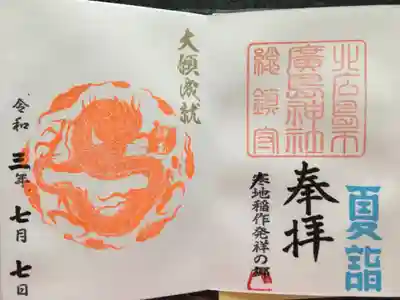 夏詣
奉拝
北広島市
廣島神社
総鎮守
寒地稲作発祥の郷
大願成就
令和三年七月七日